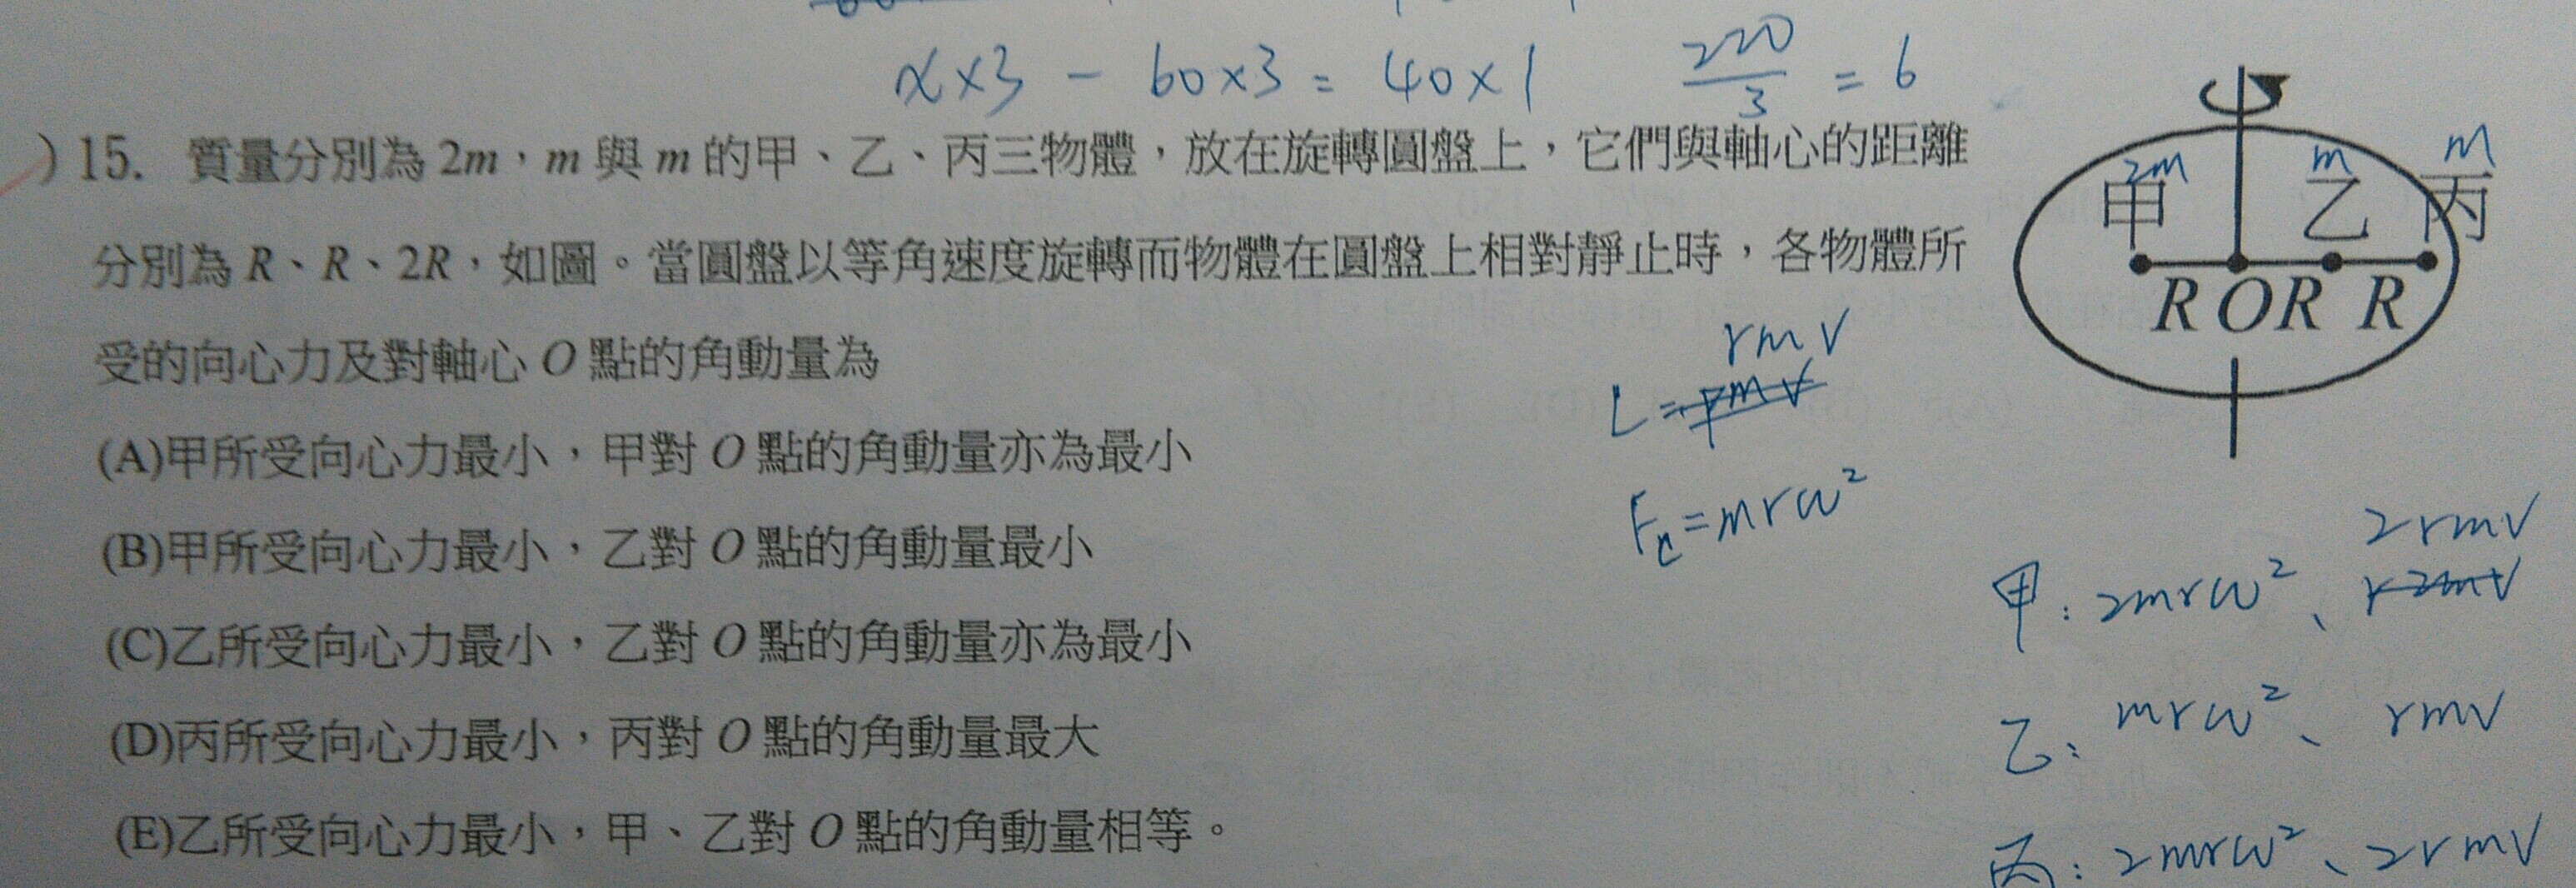 x×3 - 60×3 = 40×1
220/3 = 6
)15. 質量分別為 2m，m 與 m 的甲、乙、丙三物體，放在旋轉圓盤上，它們與軸心的距離
分別為 R、R、2R，如圖。當圓盤以等角速度旋轉而物體在圓盤上相對靜止時，各物體所
受的向心力及對軸心 O 點的角動量為
(A)甲所受向心力最小，甲對 O 點的角動量亦為最小
(B)甲所受向心力最小，乙對 O 點的角動量最小
(C)乙所受向心力最小，乙對 O 點的角動量亦為最小
(D)丙所受向心力最小，丙對 O 點的角動量最大
(E)乙所受向心力最小，甲、乙對 O 點的角動量相等。
2m m m
甲 乙 丙
R O R R
rmv
L = rmv
Fc = mrω²
2rmv
甲：2mrω²、r2mv
乙：mrω²、rmv
丙：2mrω²、2rmv